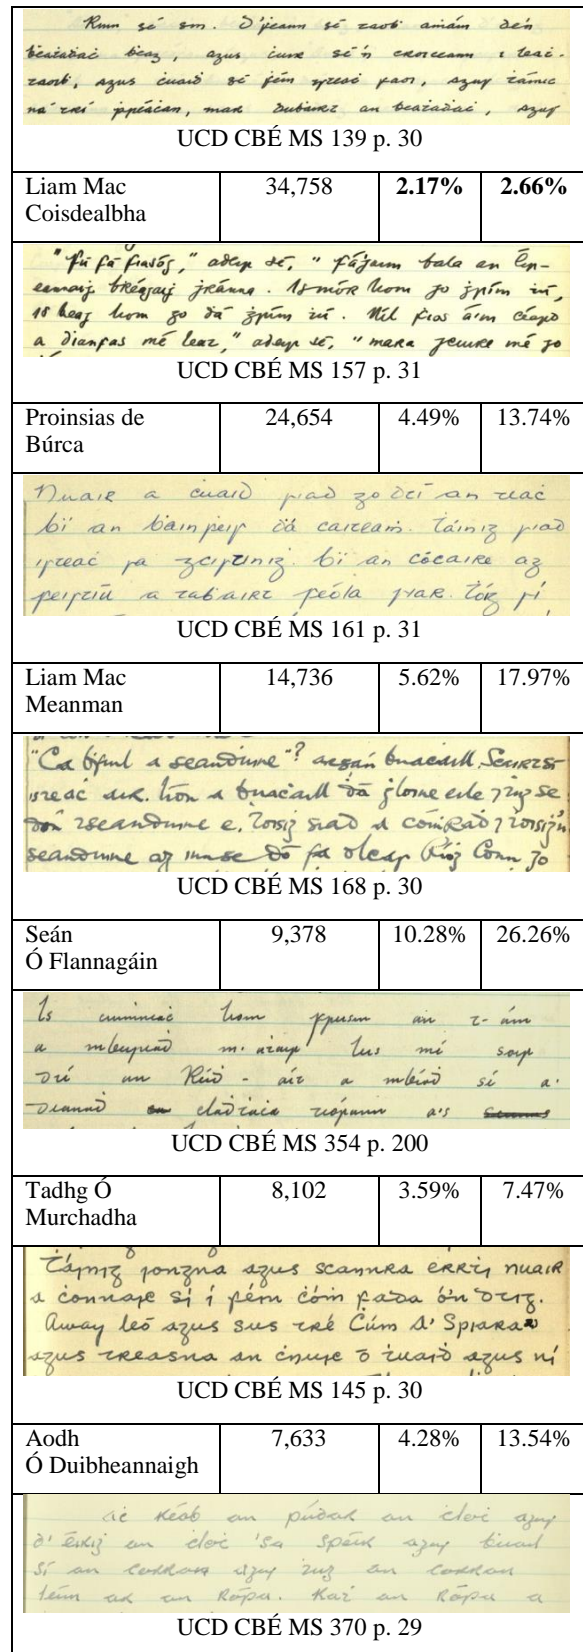 Rinn sé sin. D'ḟeann sé taoḃ aṁáin de'n
beaṫaḋaċ beag, agus ċuir sé'n croiceann i leaṫ-
taoiḃ, agus ċuaiḋ sé féin isteaċ faoi, agus ṫáinic
na trí ṗréaċáin, mar duḃairt an beaṫaḋaċ, agus
UCD CBÉ MS 139 p. 30
Liam Mac Coisdealbha 34,758 2.17% 2.66%
"Fú fá fiasóg," adeir sé, "fáġaim bala an Éir-
eannaiġ ḃréagaiġ ġránna. Is mór liom go ġrím ṫú,
is beag liom go dá ġrím ṫú. Níl fios a'm céard
a ḋianfas mé leat," adeir sé, "mara
UCD CBÉ MS 157 p. 31
Proinsias de Búrca 24,654 4.49% 13.74%
Nuair a ċuaiḋ siad go dtí an teaċ
ḃí an ḃainḟeis ḋá caiṫeaṁ. Ṫáinig siad
isteaċ sa gcistiniġ. Ḃí an cócaire ag
a taḃairt feóla siar. Ṫóg sí
UCD CBÉ MS 161 p. 31
Liam Mac Meanman 14,736 5.62% 17.97%
"Cá ḃfuil a seanduine"? arsan buaċaill.
isteaċ air. Líon a buaċaill dá ġloine eile ⁊ ṫug sé
don tseanduine é. Ṫoisiġ siad a coṁráḋ ⁊ ṫoisiġ'n
seanduine ag innse dó fá Ríoġ Conn go
UCD CBÉ MS 168 p. 30
Seán Ó Flannagáin 9,378 10.28% 26.26%
Is cuiṁneaċ liom an t-ám
a mbeireaḋ m'aṫair lus mí
an - áit a mbíoḋ sí a'
déanaḋ a's
UCD CBÉ MS 354 p. 200
Tadhg Ó Murchadha 8,102 3.59% 7.47%
Ṫáinig iongna agus scannra uirṫi nuair
a ċonnaic sí í féin ċóṁ fada ó'n dtig.
Away leó agus sus tré Ċúm A' Spiara
agus treasna an ċnuic ó ṫuaiḋ agus ní
UCD CBÉ MS 145 p. 30
Aodh Ó Duibheannaigh 7,633 4.28% 13.54%
aċ réab an púdar an ċloċ agus
d'éiriġ an ċloċ 'sa spéir agus ḃuail
sí an corrán agus ṫug an corrán
léim ar an rópa. an rópa a
UCD CBÉ MS 370 p. 29